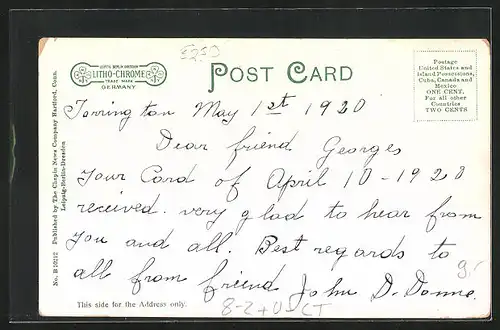 5253
LEIPZIG BERLIN DRESDEN
LITHO-CHROME
TRADE MARK
GERMANY
POST CARD
Postage
United States and
Island Possessions,
Cuba, Canada and
Mexico
ONE CENT.
For all other
Countries
TWO CENTS
Torrington May 1st 1920
Dear friend Georges
Your Card of April 10-1920
received. very glad to hear from
you and all. Best regards to
all from friend John D. Donne.
This side for the Address only.
8-2+US CT
No. B 20212 Published by The Chapin News Company Hartford, Conn.
Leipzig-Berlin-Dresden